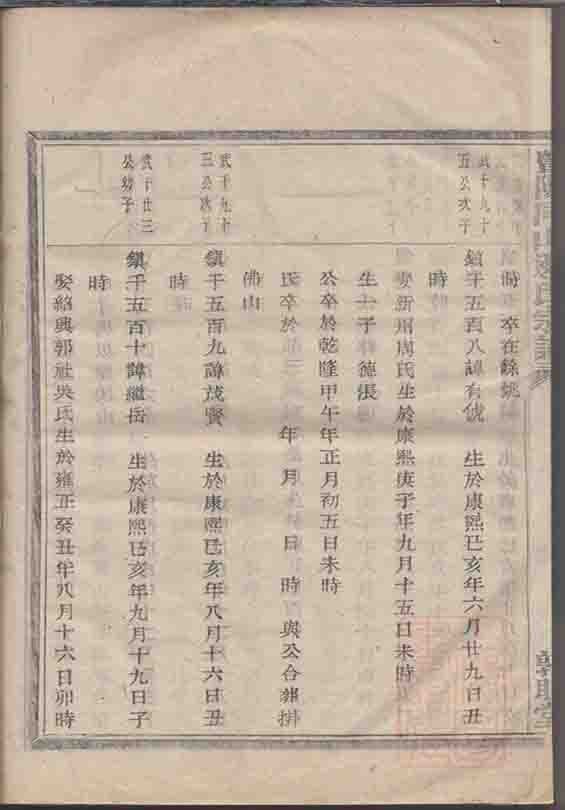 時　卒在餘姚
武十九十
五公次子
鎮千五百八諱有　生於康熙己亥年六月廿九日丑
時
娶新州周氏生於康熙庚子年九月十五日未時
生一子　德張
公卒於乾隆甲午年正月初五日未時
氏卒於　年　月　日　時　與公合葬排
佛山
武千九十
三公次子
鎮千五百九諱茂賢　生於康熙己亥年八月十六日丑
時
武千廿三
公幼子
鎮千五百十諱繼岳　生於康熙己亥年九月十九日子
時
娶紹興郭社吳氏生於雍正癸丑年八月十六日卯時